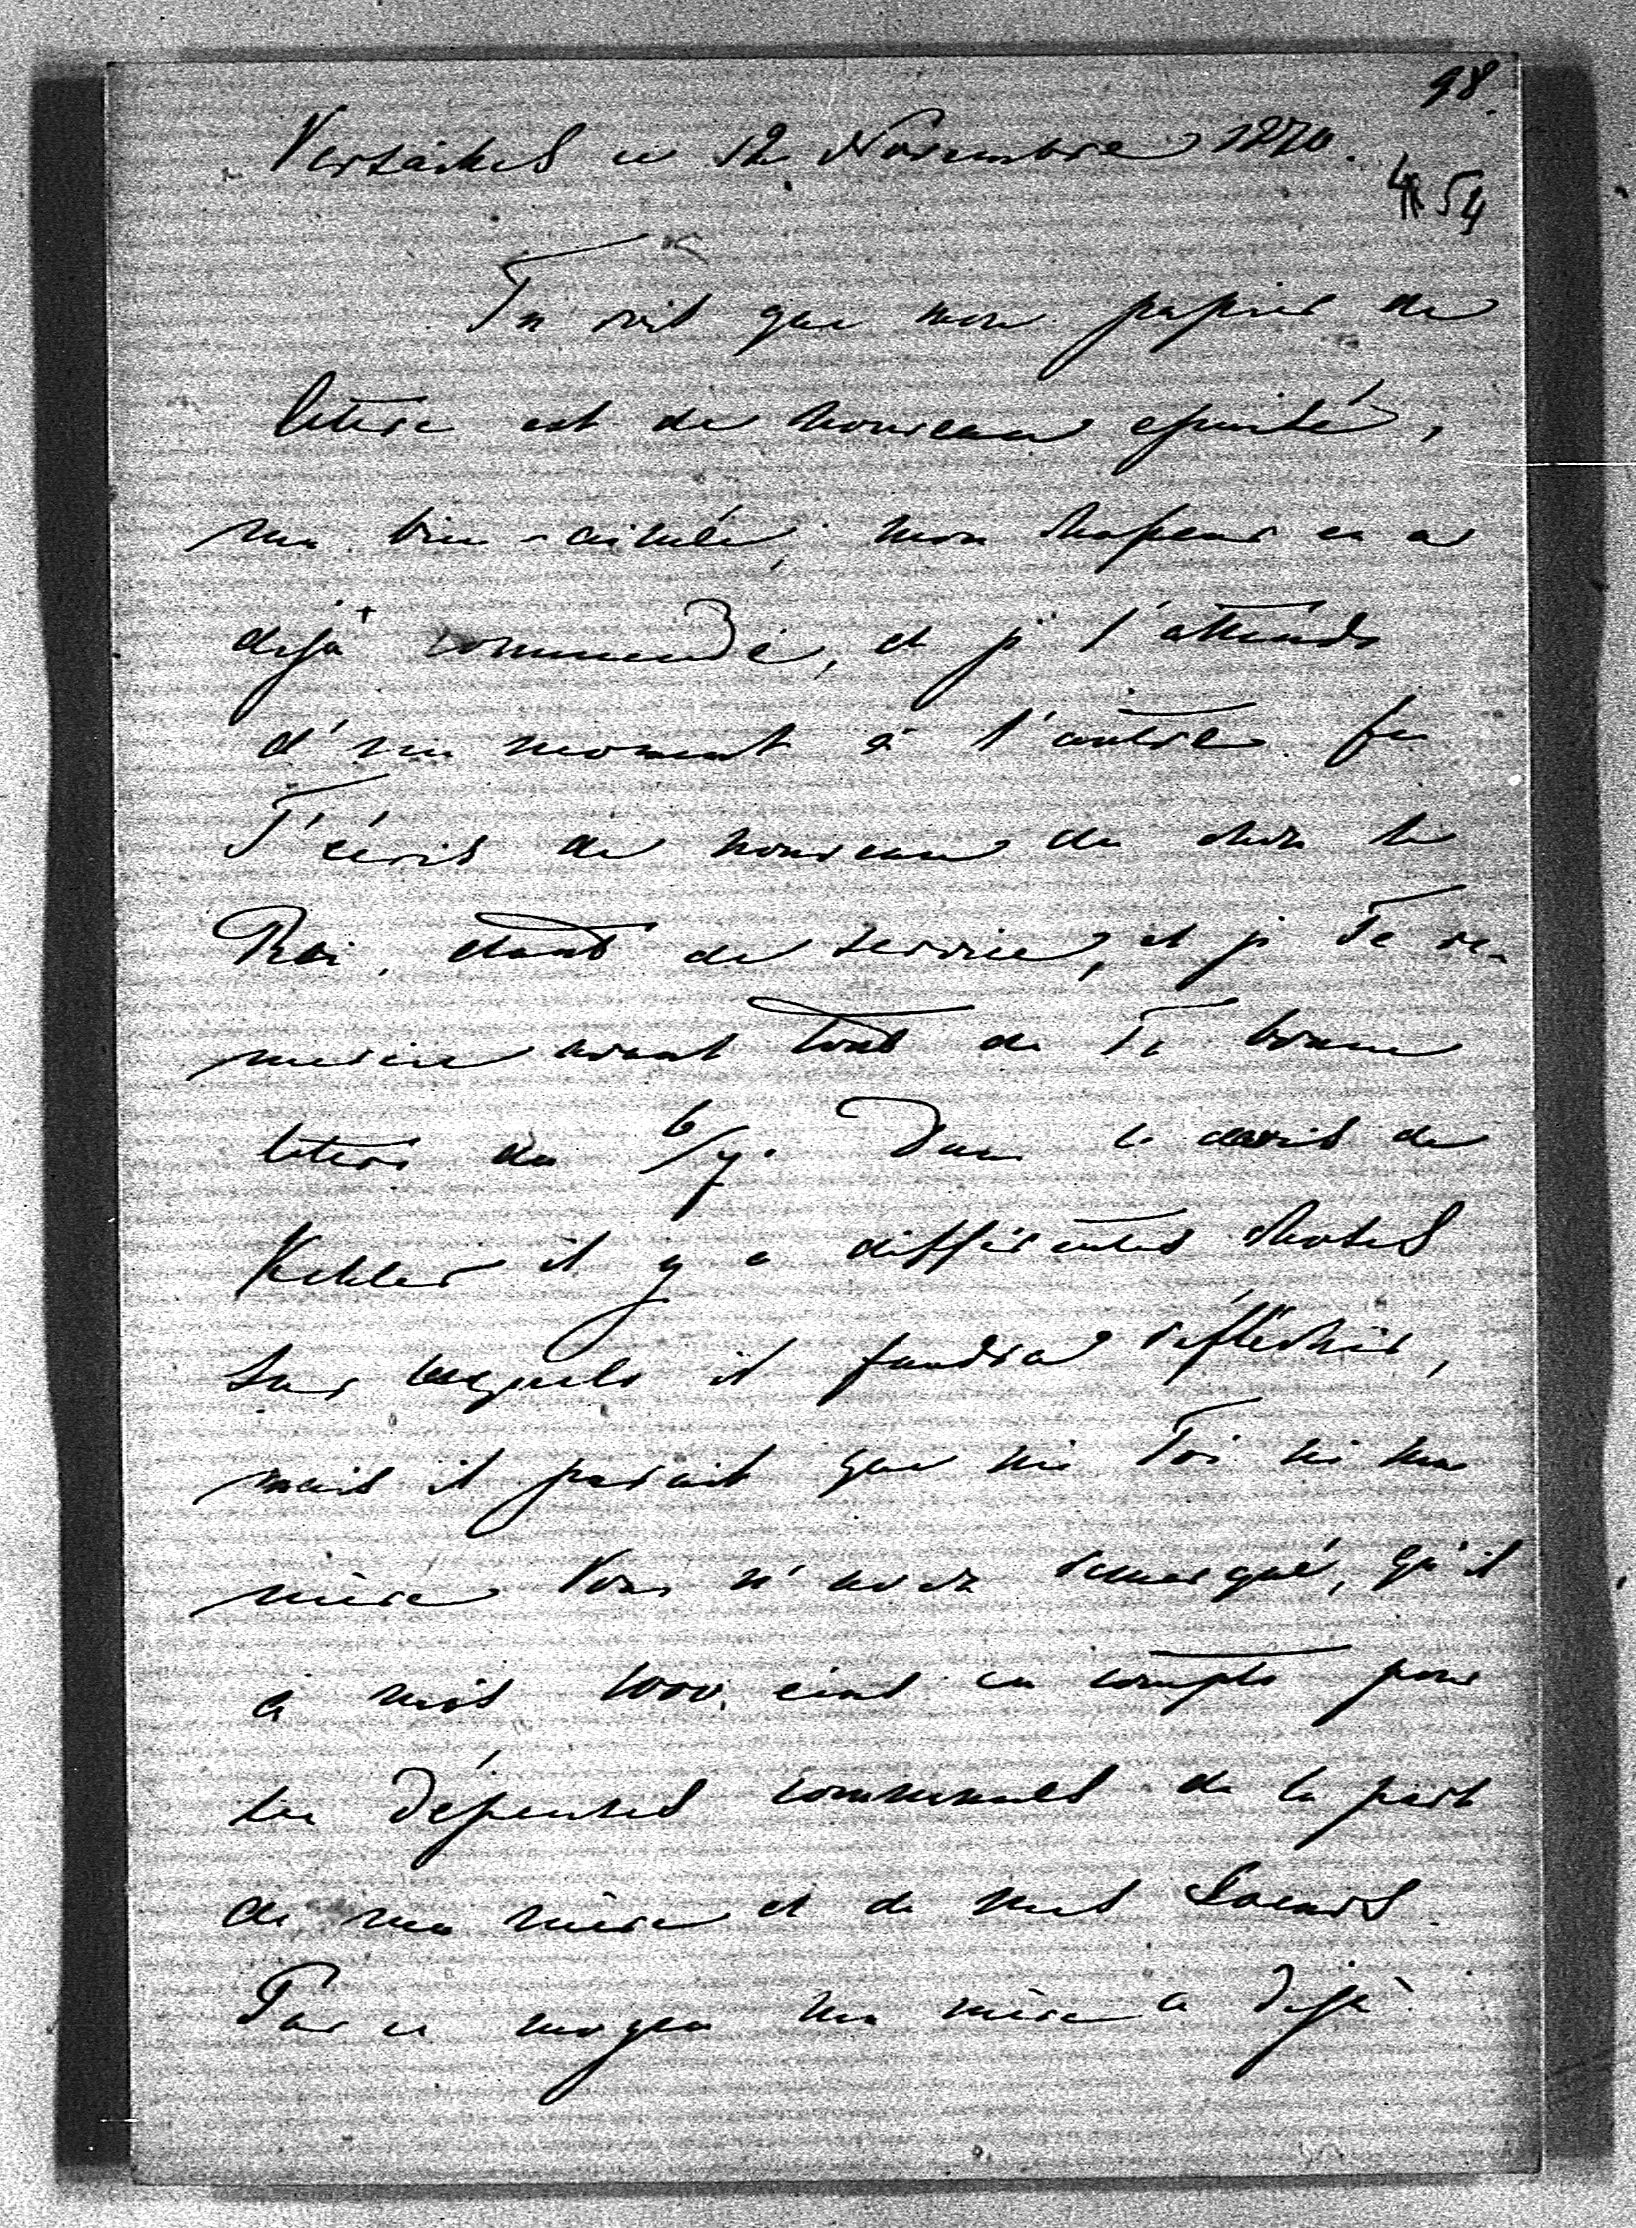 98.
Versailles ce 12 Novembre 1870.
54
Tu vois que mon papier de
lettre est de nouveau epuisé,
ma bien-aimée, mon chasseur en a
dejà commendé, et je l'attends
d'un moment à l'autre. Je
T'écris de nouveau de chez le
Roi, étant de service, et je Te re-
mercie avant tout de Ta bonne
lettre du 6/7. Dans le devis de
Kehler il y a différentes choses
sur lesquels il faudra réfléchir,
mais il parait que ni Toi ni ma
mère Vous n'avez remarqué, qu'il
a mis 1000 écus en compte pour
les dépenses communes de la part
de ma mère et de mes Soeurs.
Par ce moyen ma mère a déjà